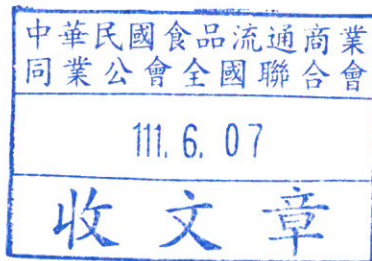 中華民國食品流通商業
同業公會全國聯合會
111. 6. 07
收文章